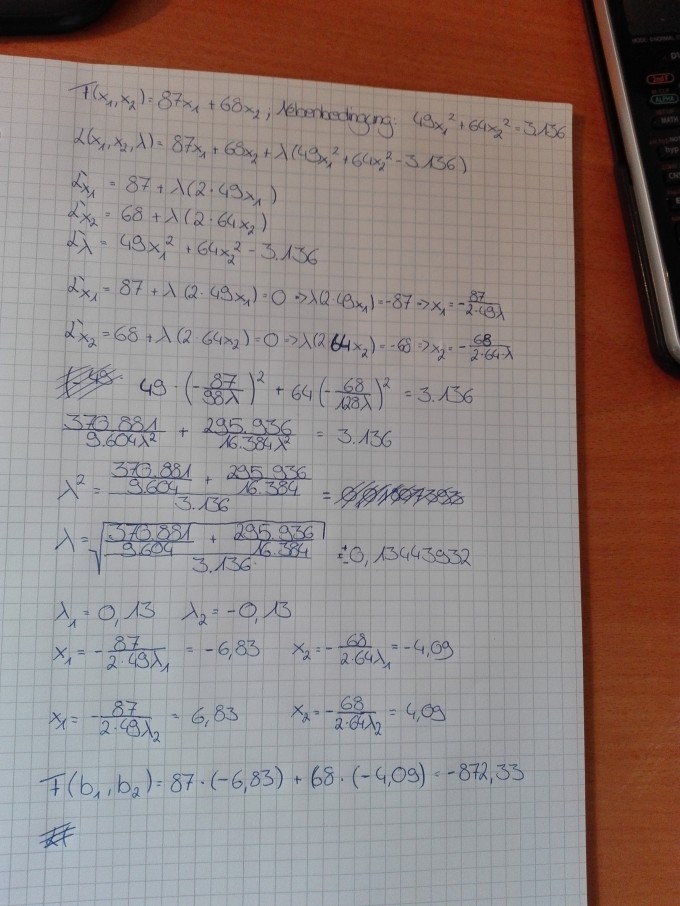 F(x₁, x₂) = 87x₁ + 68x₂ ; Nebenbedingung: 49x₁² + 64x₂² = 3.136
L(x₁, x₂, λ) = 87x₁ + 68x₂ + λ(49x₁² + 64x₂² - 3.136)
L'x₁ = 87 + λ(2·49x₁)
L'x₂ = 68 + λ(2·64x₂)
L'λ = 49x₁² + 64x₂² - 3.136
L'x₁ = 87 + λ(2·49x₁) = 0 → λ(2·49x₁) = -87 → x₁ = -87/(2·49λ)
L'x₂ = 68 + λ(2·64x₂) = 0 → λ(2 64x₂) = -68 → x₂ = -68/(2·64·λ)
49·(-87/98λ)² + 64(-68/128λ)² = 3.136
370.881/9.604λ² + 295.936/16.384λ² = 3.136
λ² = (370.881/9.604 + 295.936/16.384)/3.136 =
λ = √((370.881/9.604 + 295.936/16.384)/3.136) = ±0,13443932
λ₁ = 0,13 λ₂ = -0,13
x₁ = -87/(2·49λ₁) = -6,83 x₂ = -68/(2·64λ₁) = -4,09
x₁ = -87/(2·49λ₂) = 6,83 x₂ = -68/(2·64λ₂) = 4,09
F(b₁, b₂) = 87·(-6,83) + 68·(-4,09) = -872,33
2nd
ALPHA
MATH
hyp